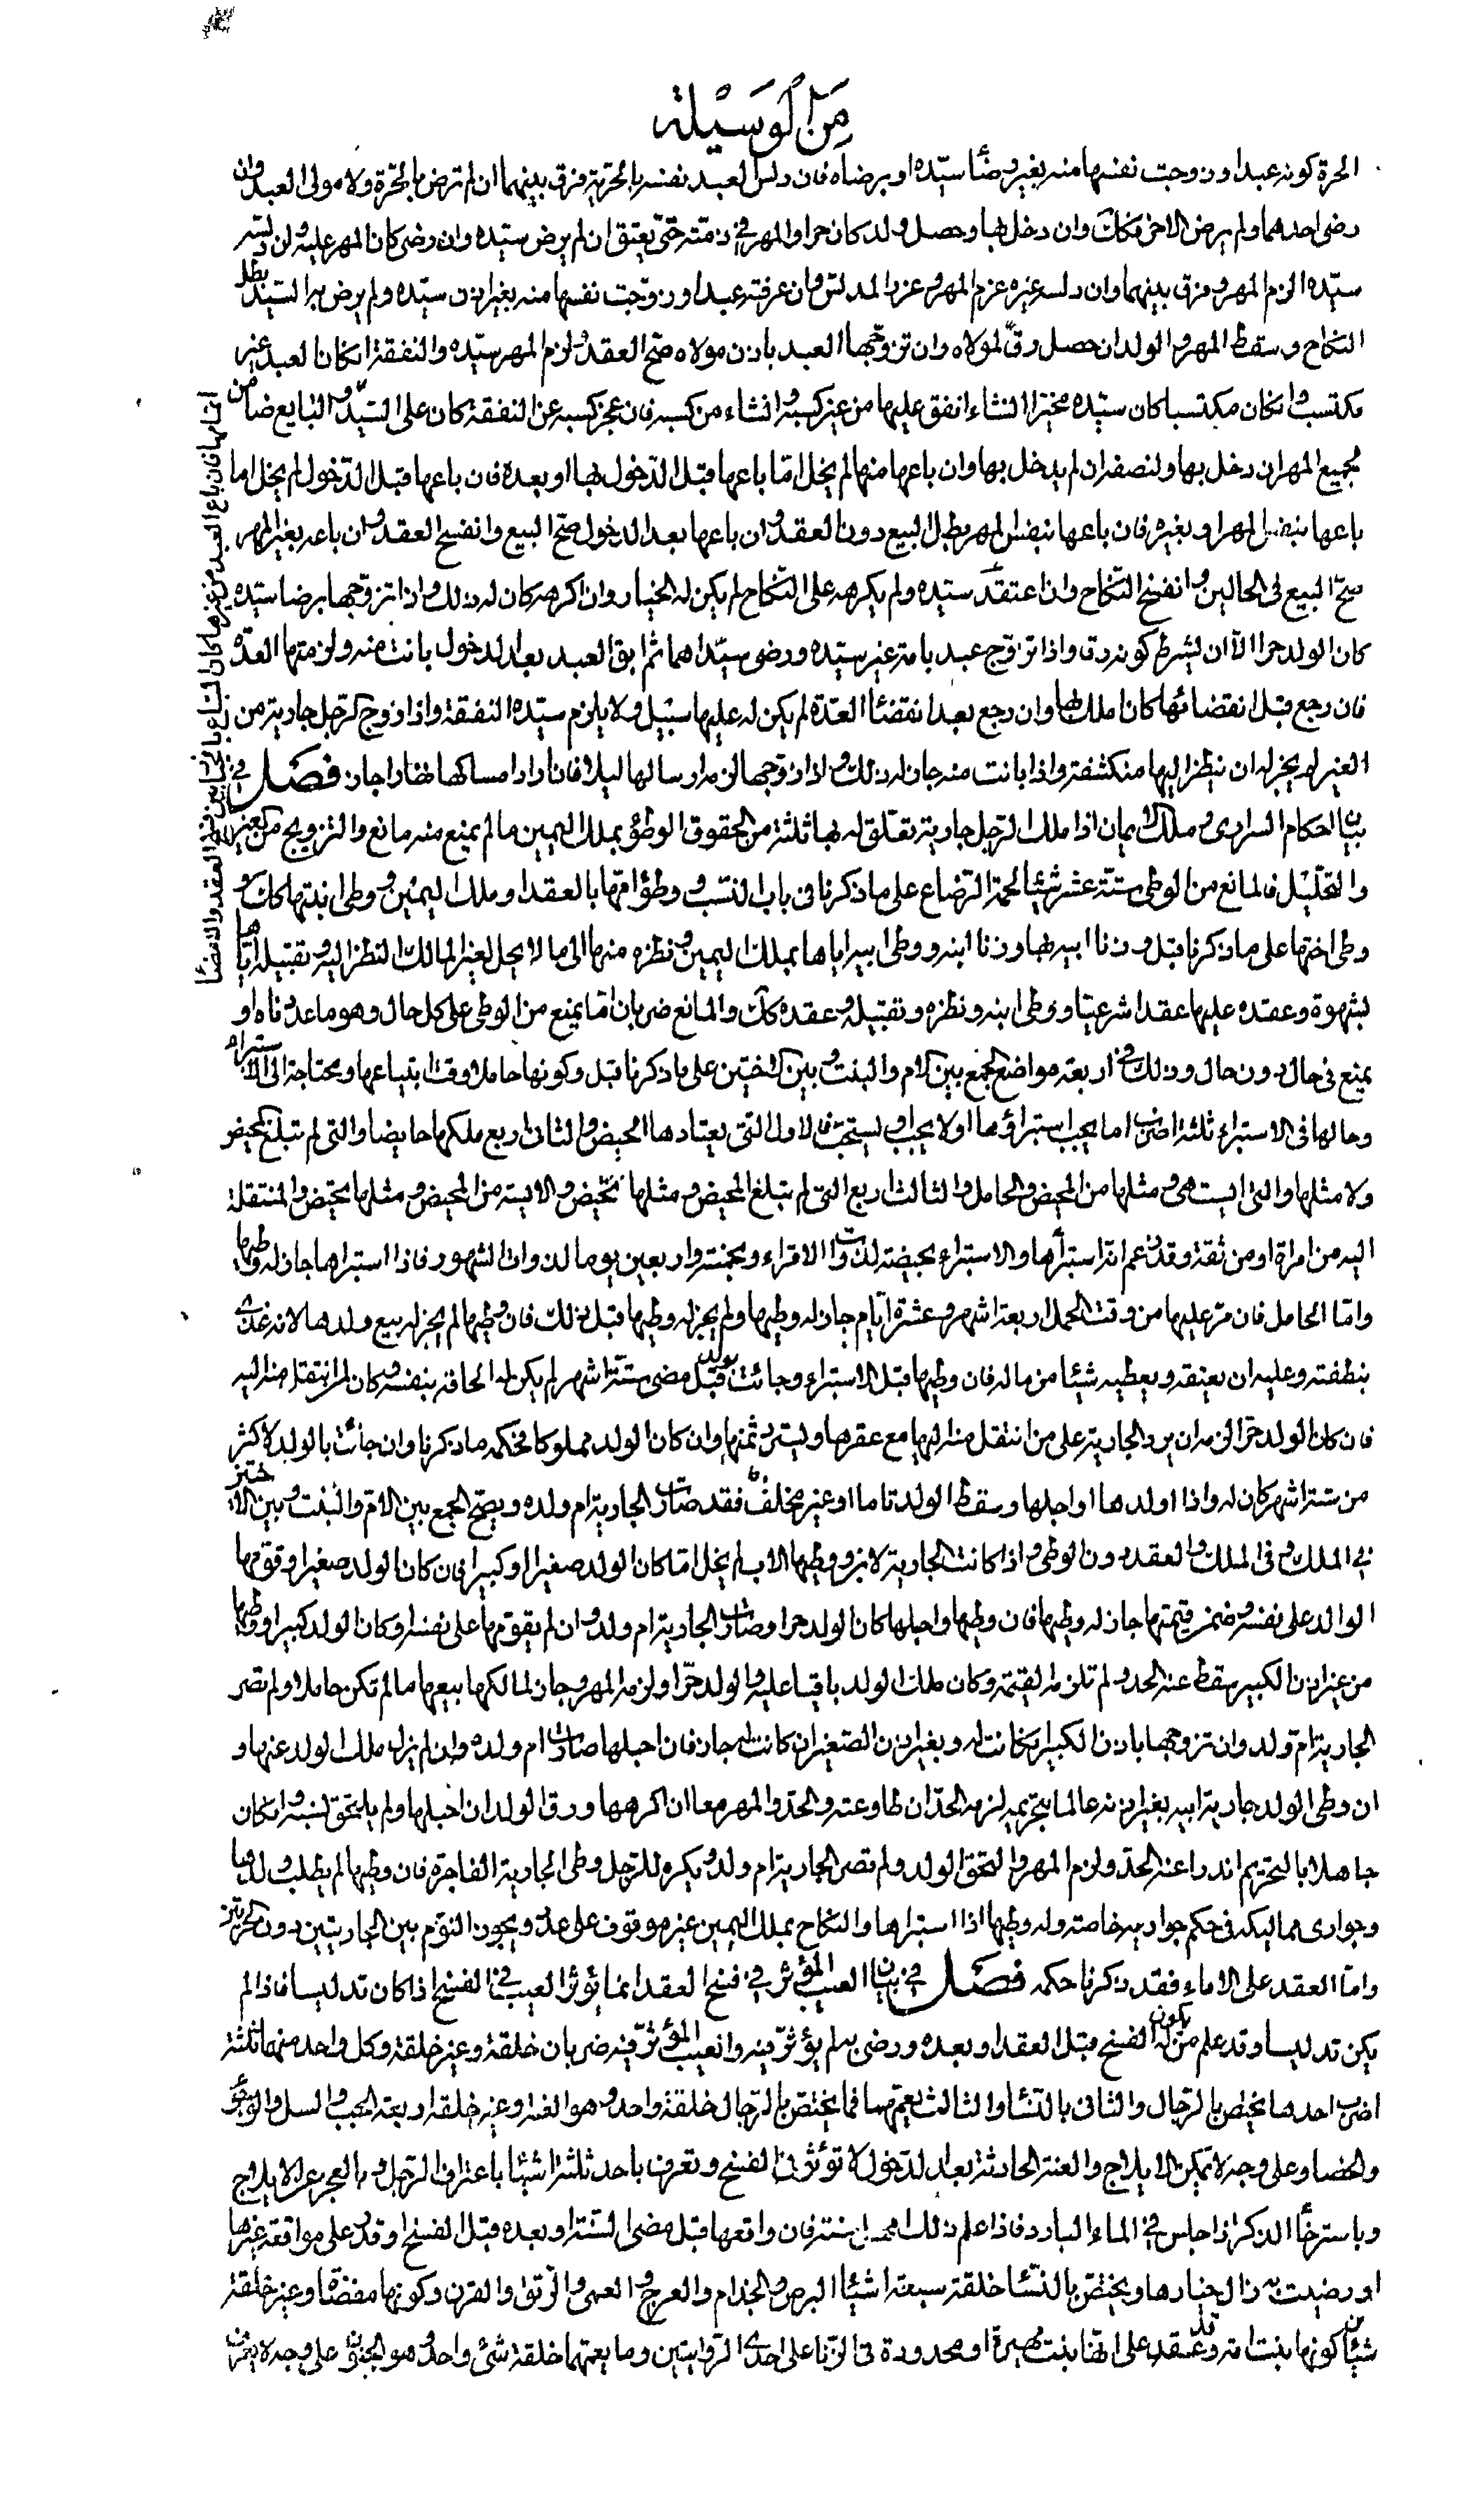 من الوسيلة
الحرة كونه عبدا وزوجت نفسها منه بغير رضا سيده او برضاه فان دلس العبد نفسه بالحرية فرق بينهما ان لم ترض بالحرة ولا مولى العبد وان
رضى احدهما ولم يرض الاخر فكك وان دخل بها وحصل ولد كان حرا والمهر في ذمته حتى يعتق ان لم يرض سيده وان رضى كان المهر عليه وان دلسه
سيده الزم المهر وفرق بينهما وان دلسه غيره غرم المهر وغر المدلس وان عرفته عبدا وزوجت نفسها منه بغير اذن سيده ولم يرض به السيد بطل
النكاح وسقط المهر والولد ان حصل رق لمولاه وان تزوجها العبد باذن مولاه صح العقد ولزم المهر سيده والنفقة ان كان العبد غير
مكتسب وان كان مكتسبا كان سيده مخيرا ان شاء انفق عليها من غير كسبه وان شاء من كسبه فان عجز كسبه عن النفقة كان على السيد والبايع ضامن
لجميع المهر ان دخل بها ولنصفه ان لم يدخل بها وان باعها منها لم يخل اما باعها قبل الدخول بها او بعده فان باعها قبل الدخول لم يخل اما
باعها بنفس المهر او بغيره فان باعها بنفس المهر بطل البيع دون العقد وان باعها بعد الدخول صح البيع وانفسخ العقد وان باعه بغير المهر
صح البيع في الحالين وانفسخ النكاح واذا عتقه سيده ولم يكرهه على النكاح لم يكن له الخيار وان اكرهه كان له ذلك واذا تزوجها برضا سيده
كان الولد حرا الا ان يشرط كونه رق واذا تزوج عبد بامة غير سيده ورضى سيداهما ثم ابق العبد بعد الدخول بانت منه ولزمتها العدة
فان رجع قبل انقضائها كان املك بها وان رجع بعد انقضاء العدة لم يكن له عليها سبيل ولا يلزم سيده النفقة واذا زوج الرجل جاريته من
الغير لم يجز له ان ينظر اليها منكشفة واذا بانت منه جاز له ذلك واذا زوجها لزمه ارسالها ليلا فان اراد امساكها نهارا جاز فصل في
بيان احكام السرارى وملك الايمان اذا ملك الرجل جارية تعلق له بها ثلثة من الحقوق الوطؤ بملك اليمين ما لم يمنع منه مانع والتزويج من الغير
والتحليل فالمانع من الوطى ستة عشر شيئا لحمة الرضاع على ما ذكرنا في باب النسب ووطؤ امها بالعقد او ملك اليمين ووطى ابنتها كك و
وطى اختها على ما ذكرنا قبل وزنا ابيه بها وزنا ابنه ووطى ابيه اياها بملك اليمين ونظره منها الى ما لا يحل لغير المالك النظر اليه وتقبيله اياها
بشهوة وعقده عليها عقدا شرعيا ووطى ابنه ونظره وتقبيله وعقده كك والمانع ضربان اما يمنع من الوطى على كل حال وهو ما عددناه او
يمنع في حال دون حال وذلك في اربعة مواضع الجمع بين الام والبنت وبين الاختين على ما ذكرنا قبل وكونها حاملا وقت ابتياعها ومحتاجة الى الاستبراء
وحالها في الاستبراء ثلثة اضرب اما يجب استبراؤها او لا يجب او يستحب فالاول التي يعتادها الحيض والثاني اربع ملكها حايضا والتي لم تبلغ الحيض
ولا مثلها والتي ايست هى ومثلها من الحيض والحامل والثالث اربع التي لم تبلغ الحيض ومثلها تحيض والايسة من الحيض ومثلها تحيض والمنتقلة
اليه من امراة او من ثقة وقد زعم انه استبرأها والاستبراء بحيضة لذوات الاقراء وبخمسة واربعين يوما لذوات الشهور فاذا استبراها جاز له وطيها
واما الحامل فان مر عليها من وقت الحمل اربعة اشهر وعشرة ايام جاز له وطيها ولم يجز له وطيها قبل ذلك فان وطيها لم يجز له بيع ولدها لانه غذى
بنطفته وعليه ان يعتقه ويعطيه شيئا من ماله فان وطيها قبل الاستبراء وجائت بولد قبل مضى ستة اشهر لم يكن له الحاقه بنفسه وكان لمن انتقل منه اليه
فان كان الولد حرا لزمه ان يرد الجارية على من انتقل منه اليها مع عقرها ويسترد ثمنها وان كان الولد مملوكا فحكمه ما ذكرنا وان جائت بالولد لاكثر
من ستة اشهر كان له واذا اولدها او احبلها وسقط الولد تاما او غير مخلف فقد صارت الجارية ام ولده ويصح الجمع بين الام والبنت وبين الاختين
في الملك وفي الملك والعقد دون الوطى واذا كانت الجارية لابنه ووطيها الاب لم يخل اما كان الولد صغيرا او كبيرا فان كان الولد صغيرا وقومها
الوالد على نفسه وضمن قيمتها جاز له وطيها فان وطيها واحبلها كان الولد حرا وصارت الجارية ام ولد وان لم يقومها على نفسه او كان الولد كبيرا ووطيها
من غير اذن الكبير سقط عنه الحد ولم تلزمه القيمة وكان ملك الولد باقيا عليه والولد حرا ولزمه المهر وجاز لمالكها بيعها ما لم تكن حاملا ولم تصر
الجارية ام ولد وان تزوجها باذن الكبير ان كانت له وبغير اذن الصغير ان كانت له جاز فان احبلها صارت ام ولده وان لم يزل ملك الولد عنها و
ان وطى الولد جارية ابيه بغير اذنه عالما بتحريمه لزمه الحد ان طاوعته والحد والمهر معا ان اكرهها ورق الولد ان احبلها ولم يلحق نسبه وان كان
جاهلا بالتحريم اندرا عنه الحد ولزم المهر والتحق الولد ولم تصر الجارية ام ولد ويكره للرجل وطى الجارية الفاجرة فان وطيها لم يطلب ولدها
وجوارى مماليكه في حكم جواريه خاصة وله وطيها اذا استبراها والنكاح بملك اليمين غير موقوف على عدد ويجوز النوم بين الجاريتين دون الحرتين
واما العقد على الاماء فقد ذكرنا حكمه فصل في بيان العيب المؤثر في فسخ العقد انما يؤثر العيب في الفسخ اذا كان تدليسا فاذا لم
يكن تدليسا وقد علم من يكون له الفسخ قبل العقد او بعده ورضى به لم يؤثر فيه والعيب المؤثر فيه ضربان خلقة وغير خلقة وكل واحد منهما ثلثة
اضرب احدها يختص بالرجال والثانى بالنساء والثالث يعمهما فما يختص بالرجال خلقة واحد وهو العنة وغير خلقة اربعة الجب والسل والوجؤ
والخصا وعلى وجه لا تمكن الايلاج والعنة الحادثة بعد الدخول لا تؤثر في الفسخ وتعرف باحد ثلثة اشياء باعتراف الرجل وبالعجز عن الايلاج
وباسترخاء الذكر اذا جلس في الماء البارد فاذا علم ذلك امهل سنة فان واقعها قبل مضى السنة او بعده قبل الفسخ او قدر على مواقعة غيرها
او رضيت به زال خيارها ويختص بالنساء خلقة سبعة اشياء البرص والجذام والعرج والعمى والرتق والقرن وكونها مفضاة وغير خلقة
شيئان كونها بنت امة وقد عقد على انها بنت مهيرة او محدودة في الزنا على احدى الروايتين وما يعمهما خلقة شئ واحد وهو الجنون على وجه لا يعرف